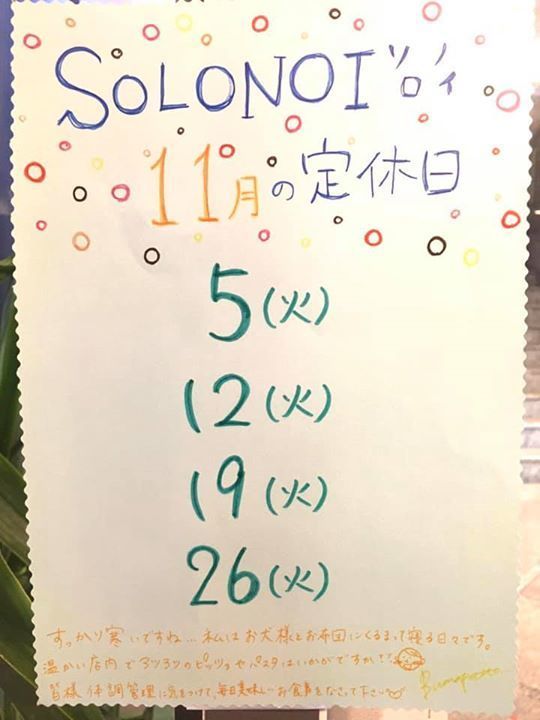 SOLONOI ソロノイ
11月の定休日
5(火)
12(火)
19(火)
26(火)
すっかり寒いですね…私はお犬様とお布団にくるまって寝る日々です。
温かい店内でアツアツのピッツァやパスタはいかがですか??
皆様体調管理に気をつけて、毎日美味しいお食事をなさって下さい